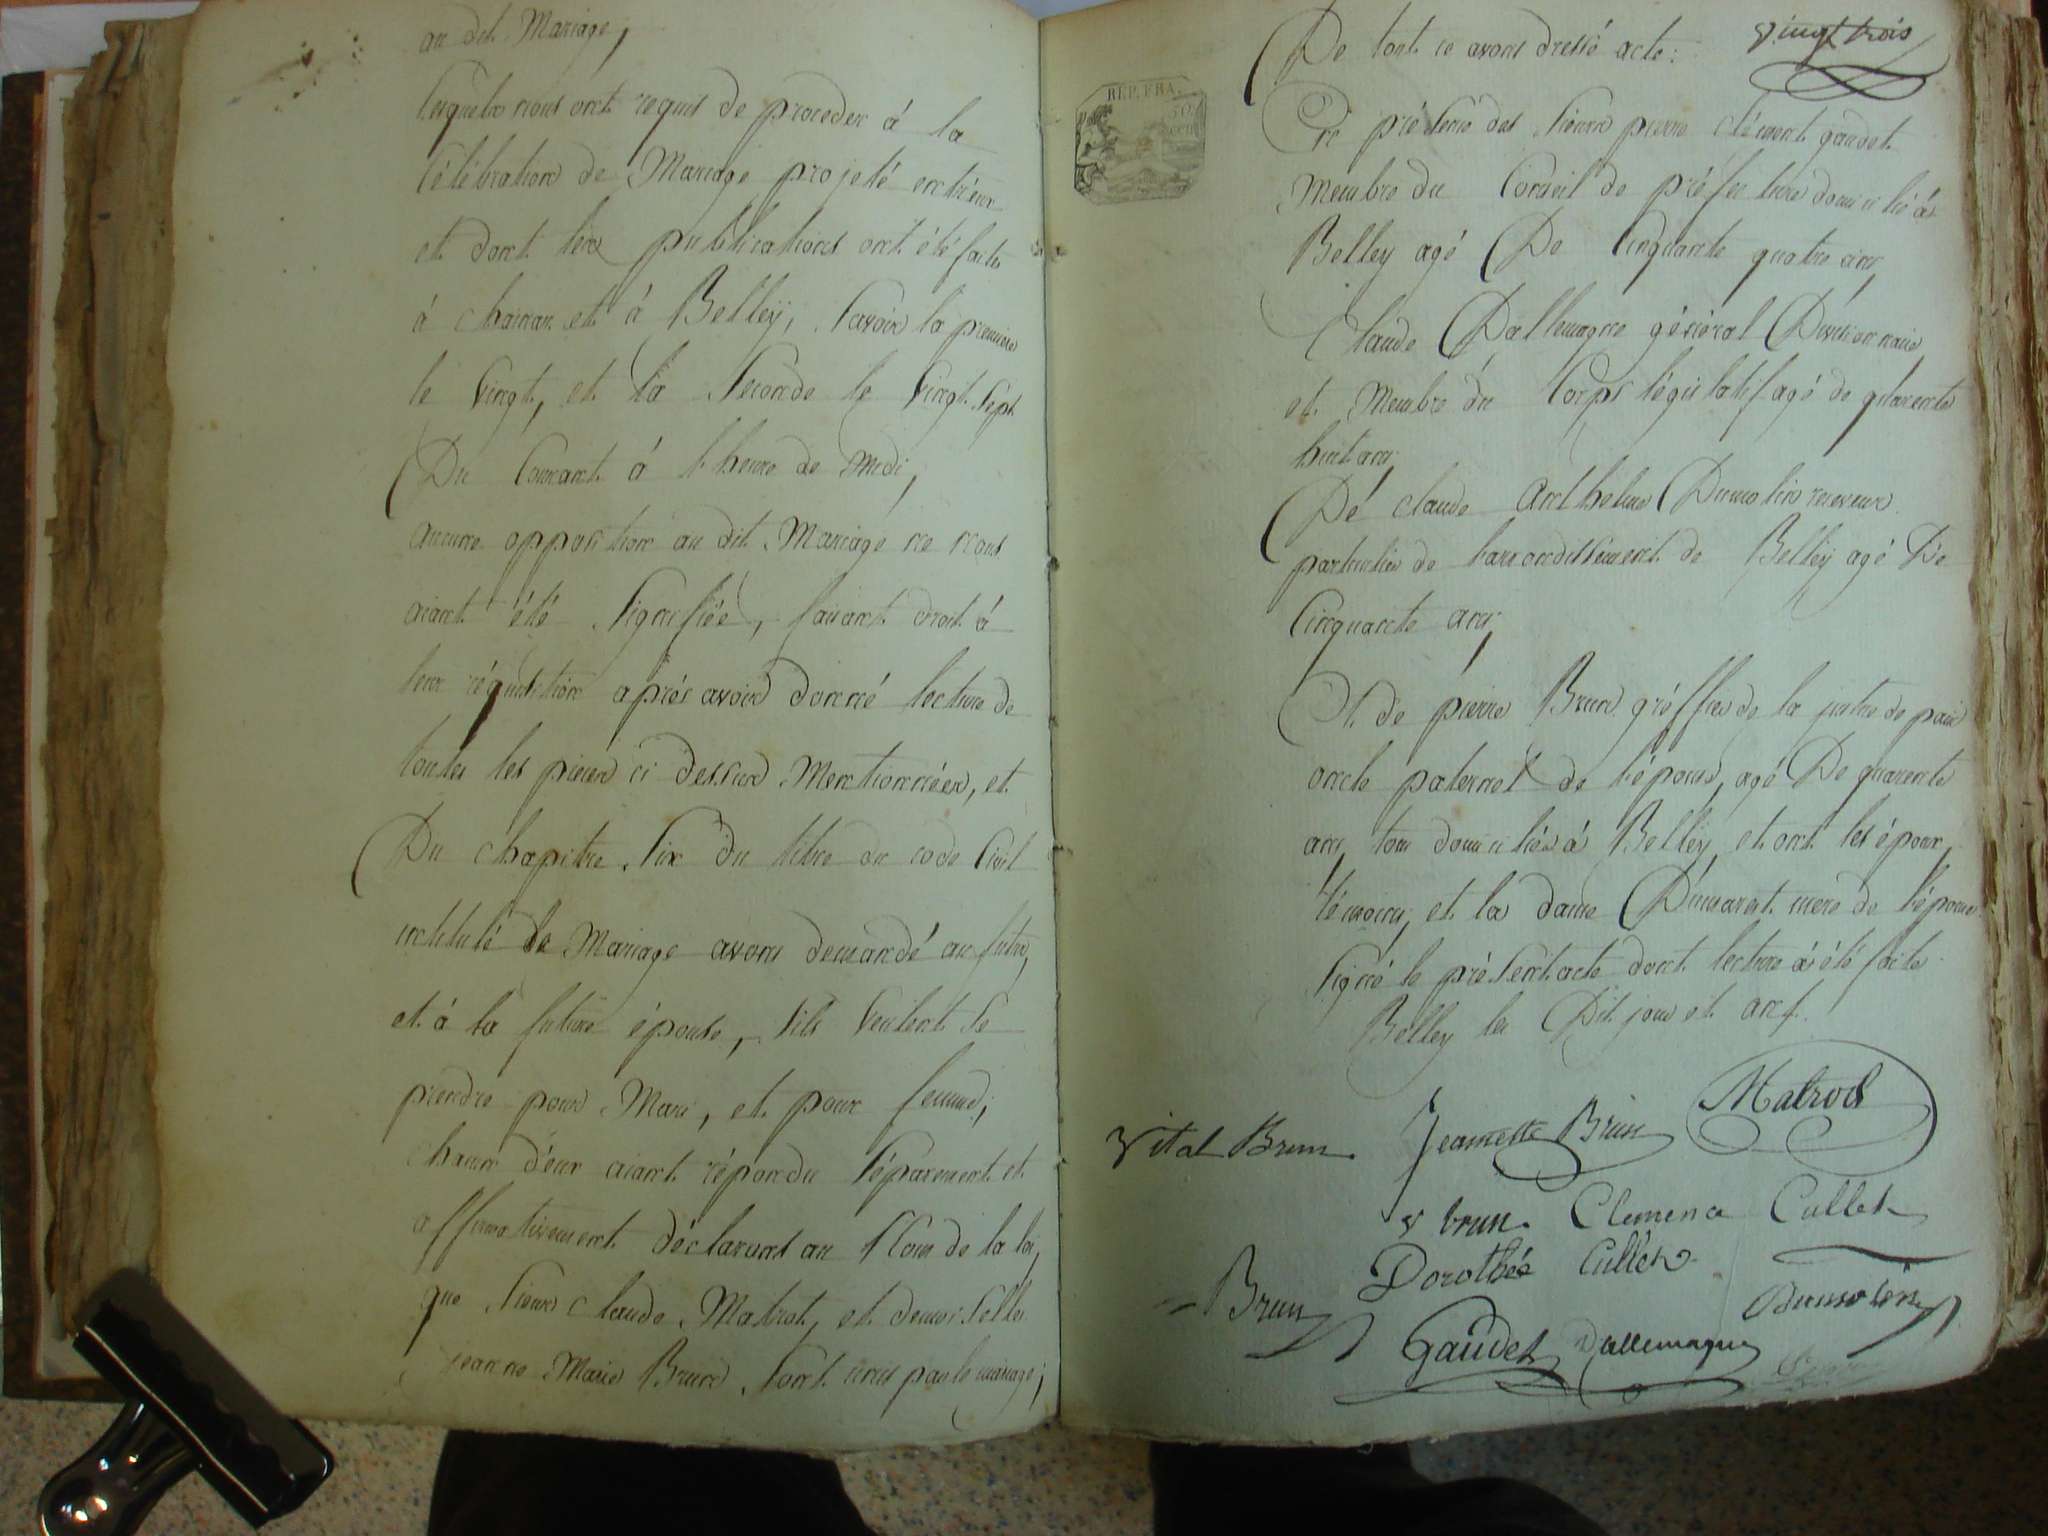 au dit Mariage,
Lesquels nous ont requis de proceder à la
Célébration de Mariage projeté entr'eux
et dont les publications ont été faites
à et à Belleÿ, Savoir la premiere
le Vingt, et la Seconde le Vingt Sept
Du Courant à l'heure de Midi,
aucune opposition au dit Mariage ne nous
aiant été Signifiée, faisant droit à
leur réquisition après avoir donné lecture de
toutes les pieces ci dessus Mentionnées, et
Du chapitre Six du titre du code Civil
intitulé de Mariage avons demandé au futur,
et à la future épouse, s'ils Veulent Se
prendre pour Mari, et pour femme;
chacun d'eux aiant répondu Séparement et
affirmativement déclarons au Nom de la loi,
que Sieur Claude Matrot, et demoiselle
jeanne Marie Brun Sont unis par le mariage;
vingt trois
De tout ce avons dressé acte:
REP. FRA.
50
cent
En présence des Sieurs pierre clément gaudet
Membre du Conseil de préfecture domicilié à
Belley agé De Cinquante quatre ans,
Claude Dallemagne général Divisionnaire
et Membre du Corps législatif agé de quarente
huit ans,
De claude Anthelme Dumolin receveur
particulier de l'arrondissement de Belleÿ agé De
Cinquante ans,
Et de pierre Brun gréffier de la justice de paix
oncle paternel de l'épouse, agé De quarente
ans, tous domiciliés à Belley, et ont les époux,
témoins, et la dame mere de l'épouse
Signé le présent acte dont lecture à été faite
Belley les Dit jour et an.
Vital Brun. Jeannette Brun Matrot
brun. Clemence Cullet
Dorothée Cullet
Brun Dumolin
Gaudet Dallemagne